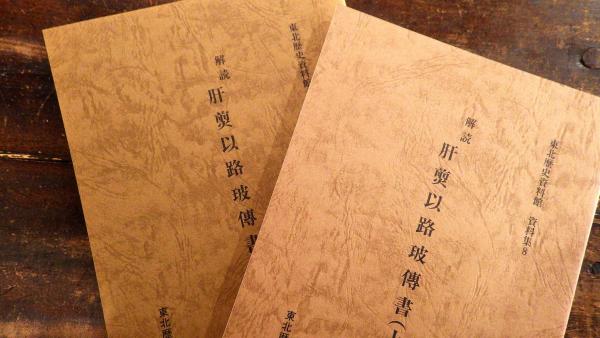 東北歴史資料館 資料集8
解読
肝煎以路玻傳書(上
東北歴
東北歴史資料館
解読
肝煎以路玻傳書
東北歴